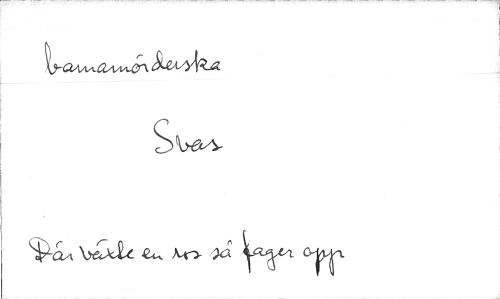 barnamörderska
Svas
Där växte en ros så fager opp